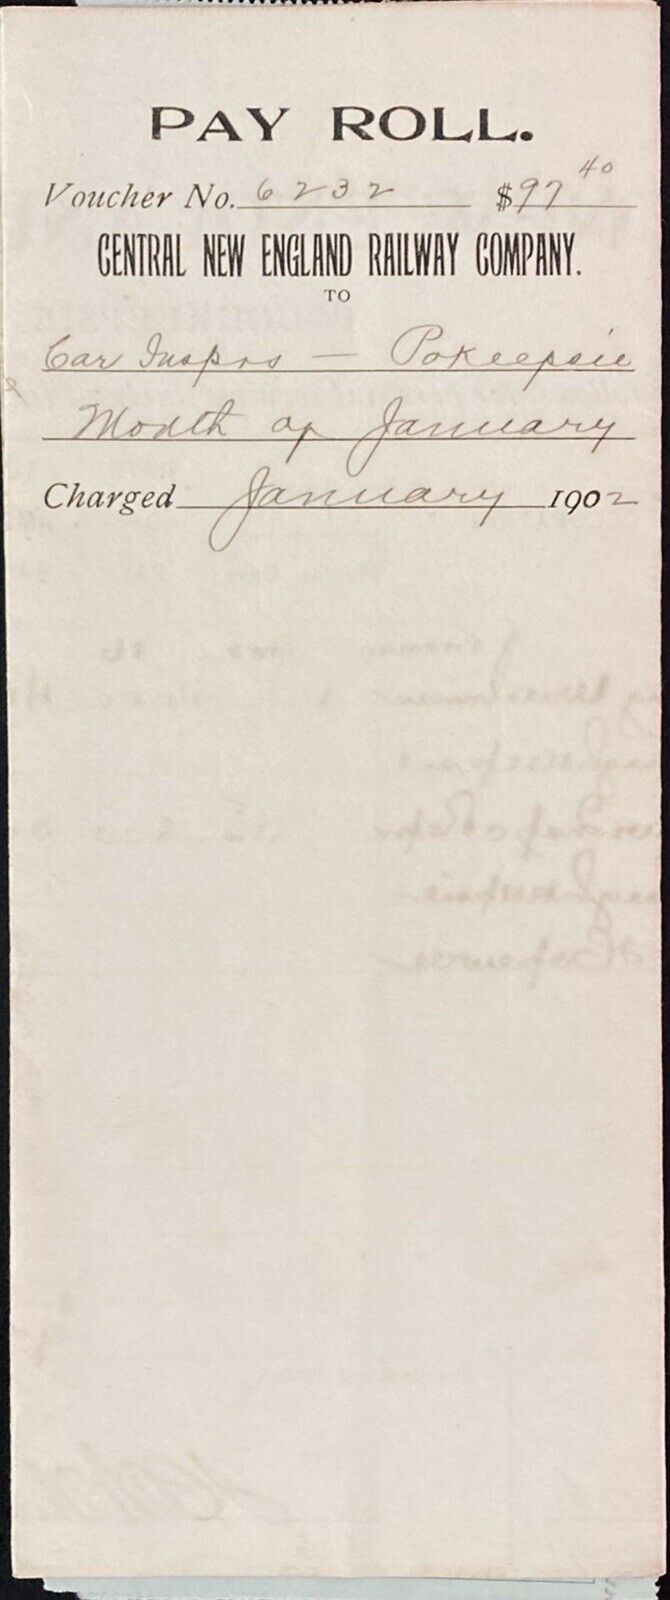 PAY ROLL.
Voucher No. 6232 $97 40
CENTRAL NEW ENGLAND RAILWAY COMPANY.
TO
Car Insprs — Pokeepsie
Month of January
Charged January 1902